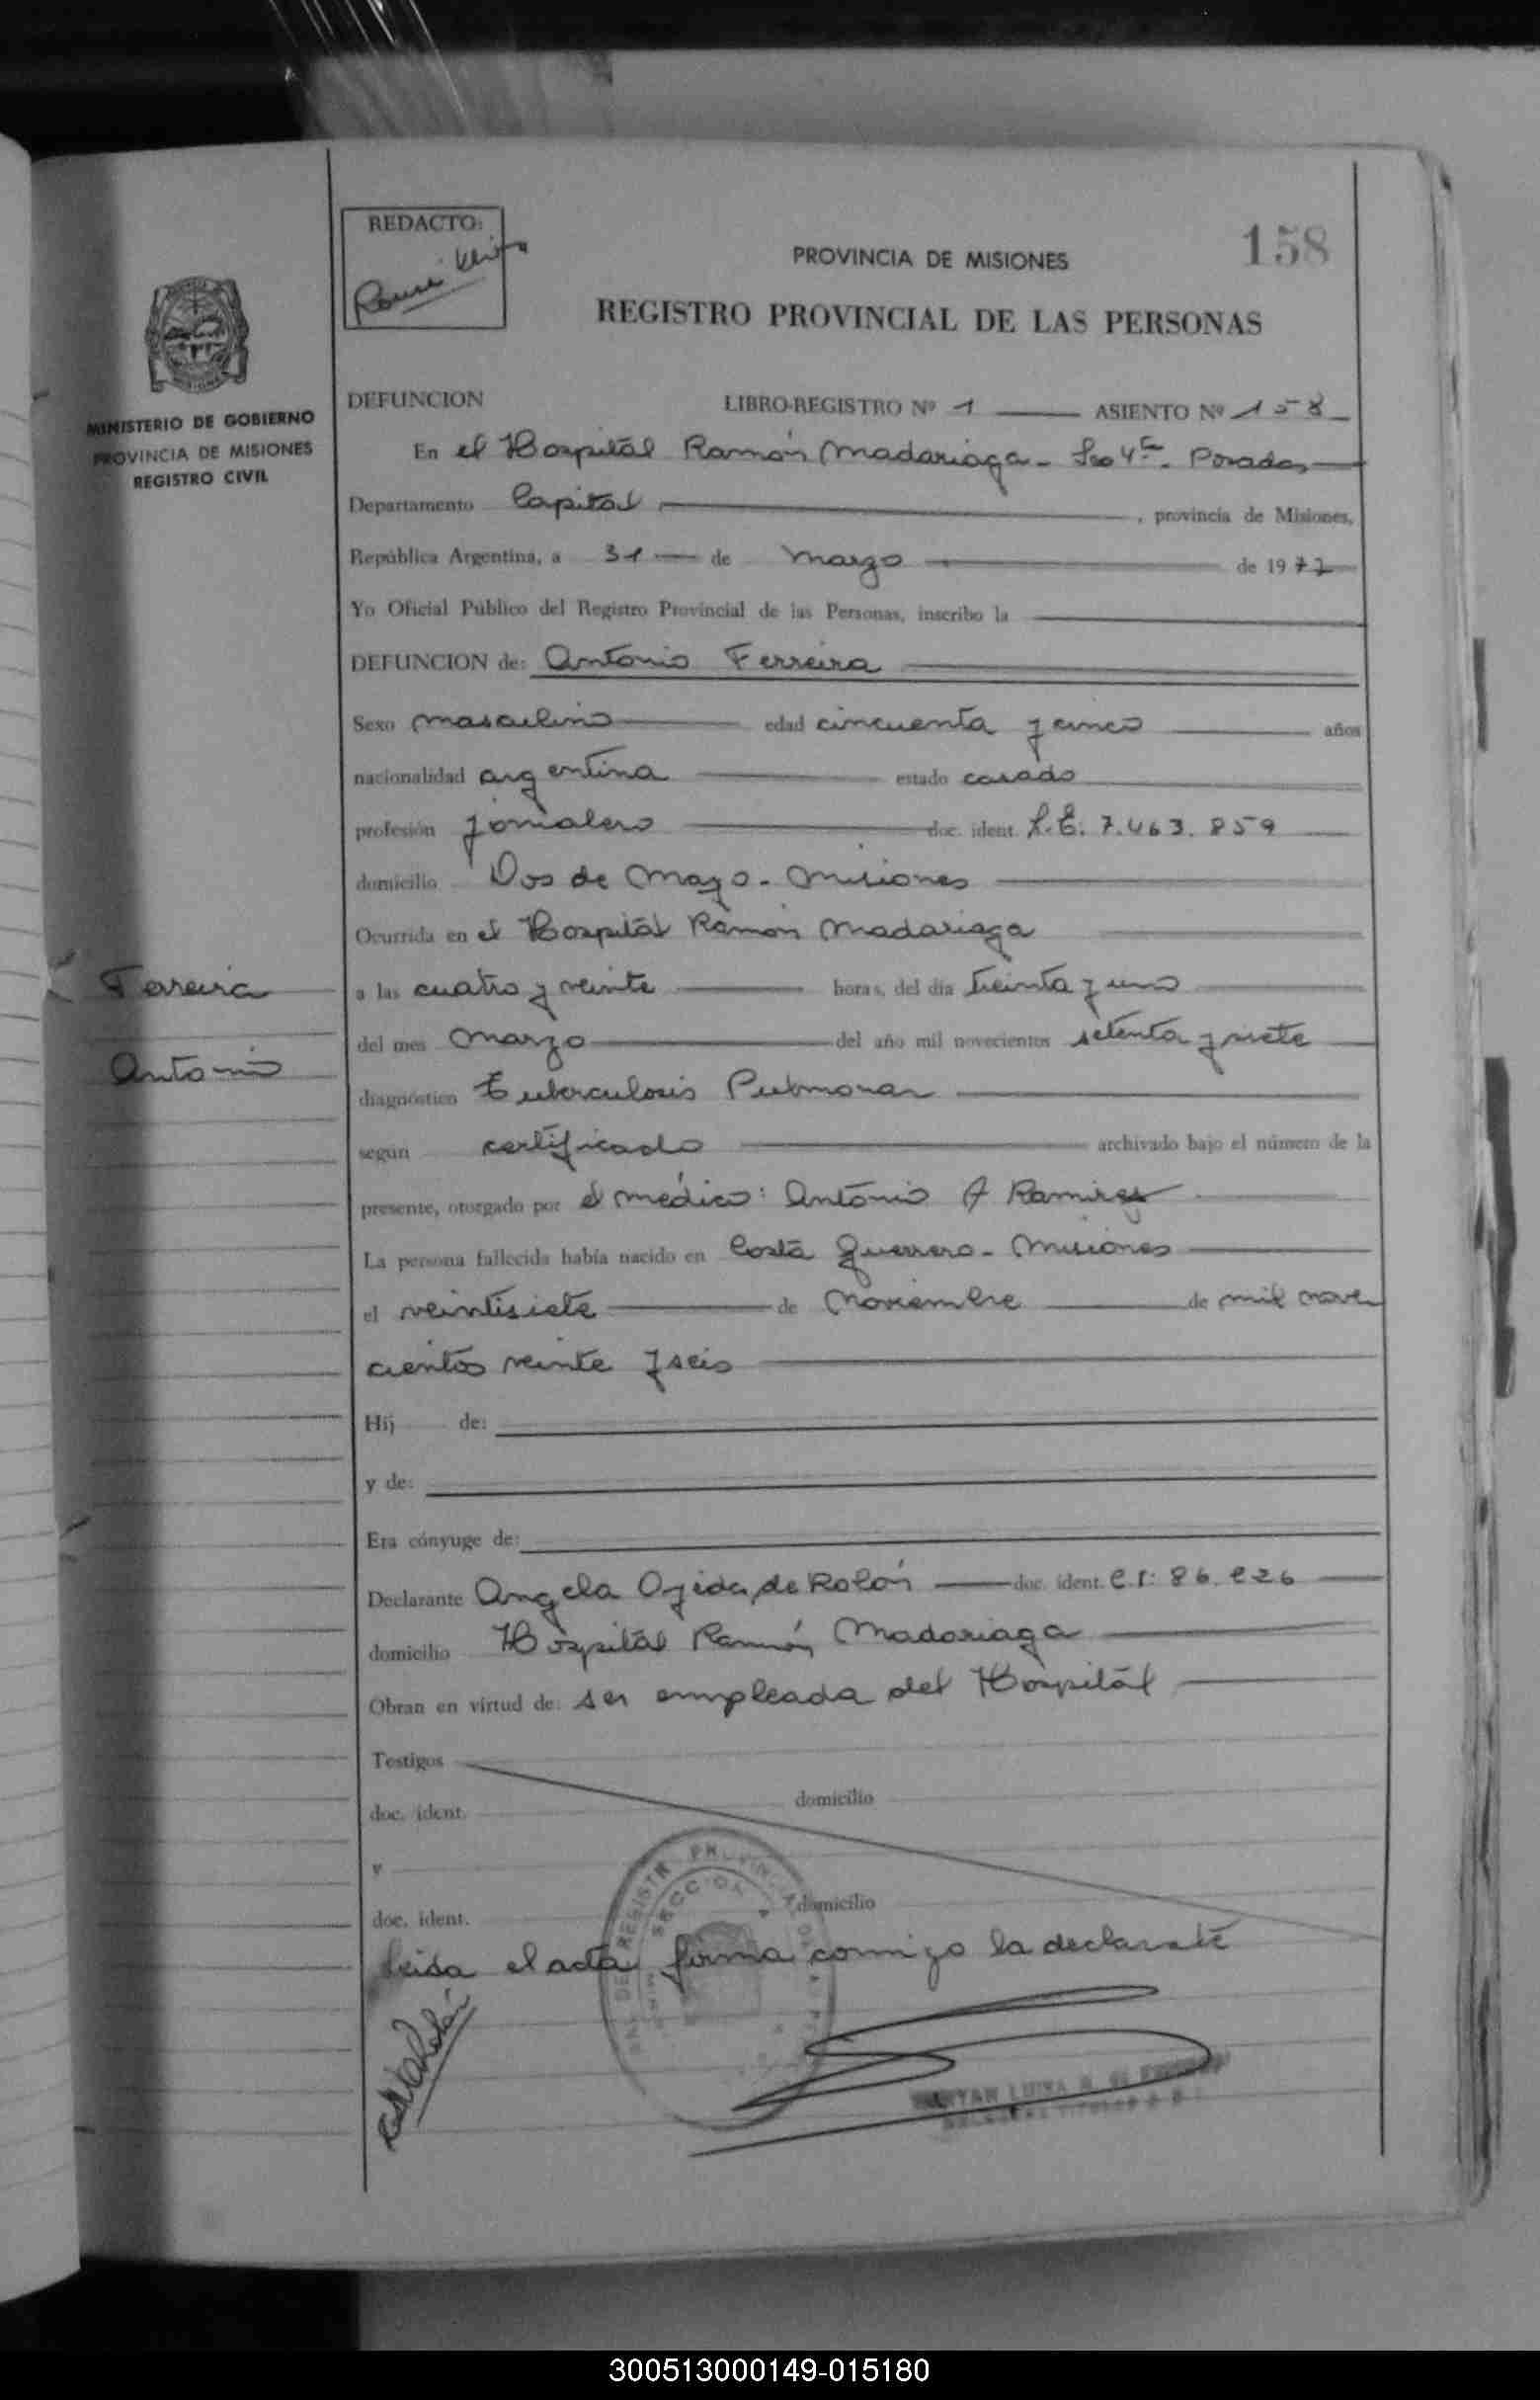 REDACTO:
158
PROVINCIA DE MISIONES
REGISTRO PROVINCIAL DE LAS PERSONAS
MINISTERIO DE GOBIERNO
PROVINCIA DE MISIONES
REGISTRO CIVIL
DEFUNCION LIBRO-REGISTRO Nº 1 ASIENTO Nº 158
En el Hospitál Ramón Madariaga - 4ta. Posadas
Departamento Capital, provincia de Misiones,
República Argentina, a 31 de marzo de 1977
Yo Oficial Público del Registro Provincial de las Personas, inscribo la
DEFUNCION de: Antonio Ferreira
Sexo masculino edad cincuenta y cinco años
nacionalidad argentina estado casado
profesión jornalero doc. ident. L.E. 7.463.859
domicilio Dos de Mayo - Misiones
Ocurrida en el Hospitál Ramón Madariaga
Ferreira
Antonio
a las cuatro y veinte horas, del día treinta y uno
del mes marzo del año mil novecientos setenta y siete
diagnóstico Tuberculosis Pulmonar
según certificado archivado bajo el número de la
presente, otorgado por el médico: Antonio A Ramirez
La persona fallecida había nacido en Costa Guerrero - Misiones
el veintisiete de Noviembre de mil nove
cientos veinte y seis
Hij de:
y de:
Era cónyuge de:
Declarante Angela Ojeda de Rolón doc. ident. C.I: 86.226
domicilio Hospitál Ramón Madariaga
Obran en virtud de: ser empleada del Hospitál
Testigos
doc. ident. domicilio
y
doc. ident. domicilio
Leida el acta, firma conmigo la declarate
300513000149-015180